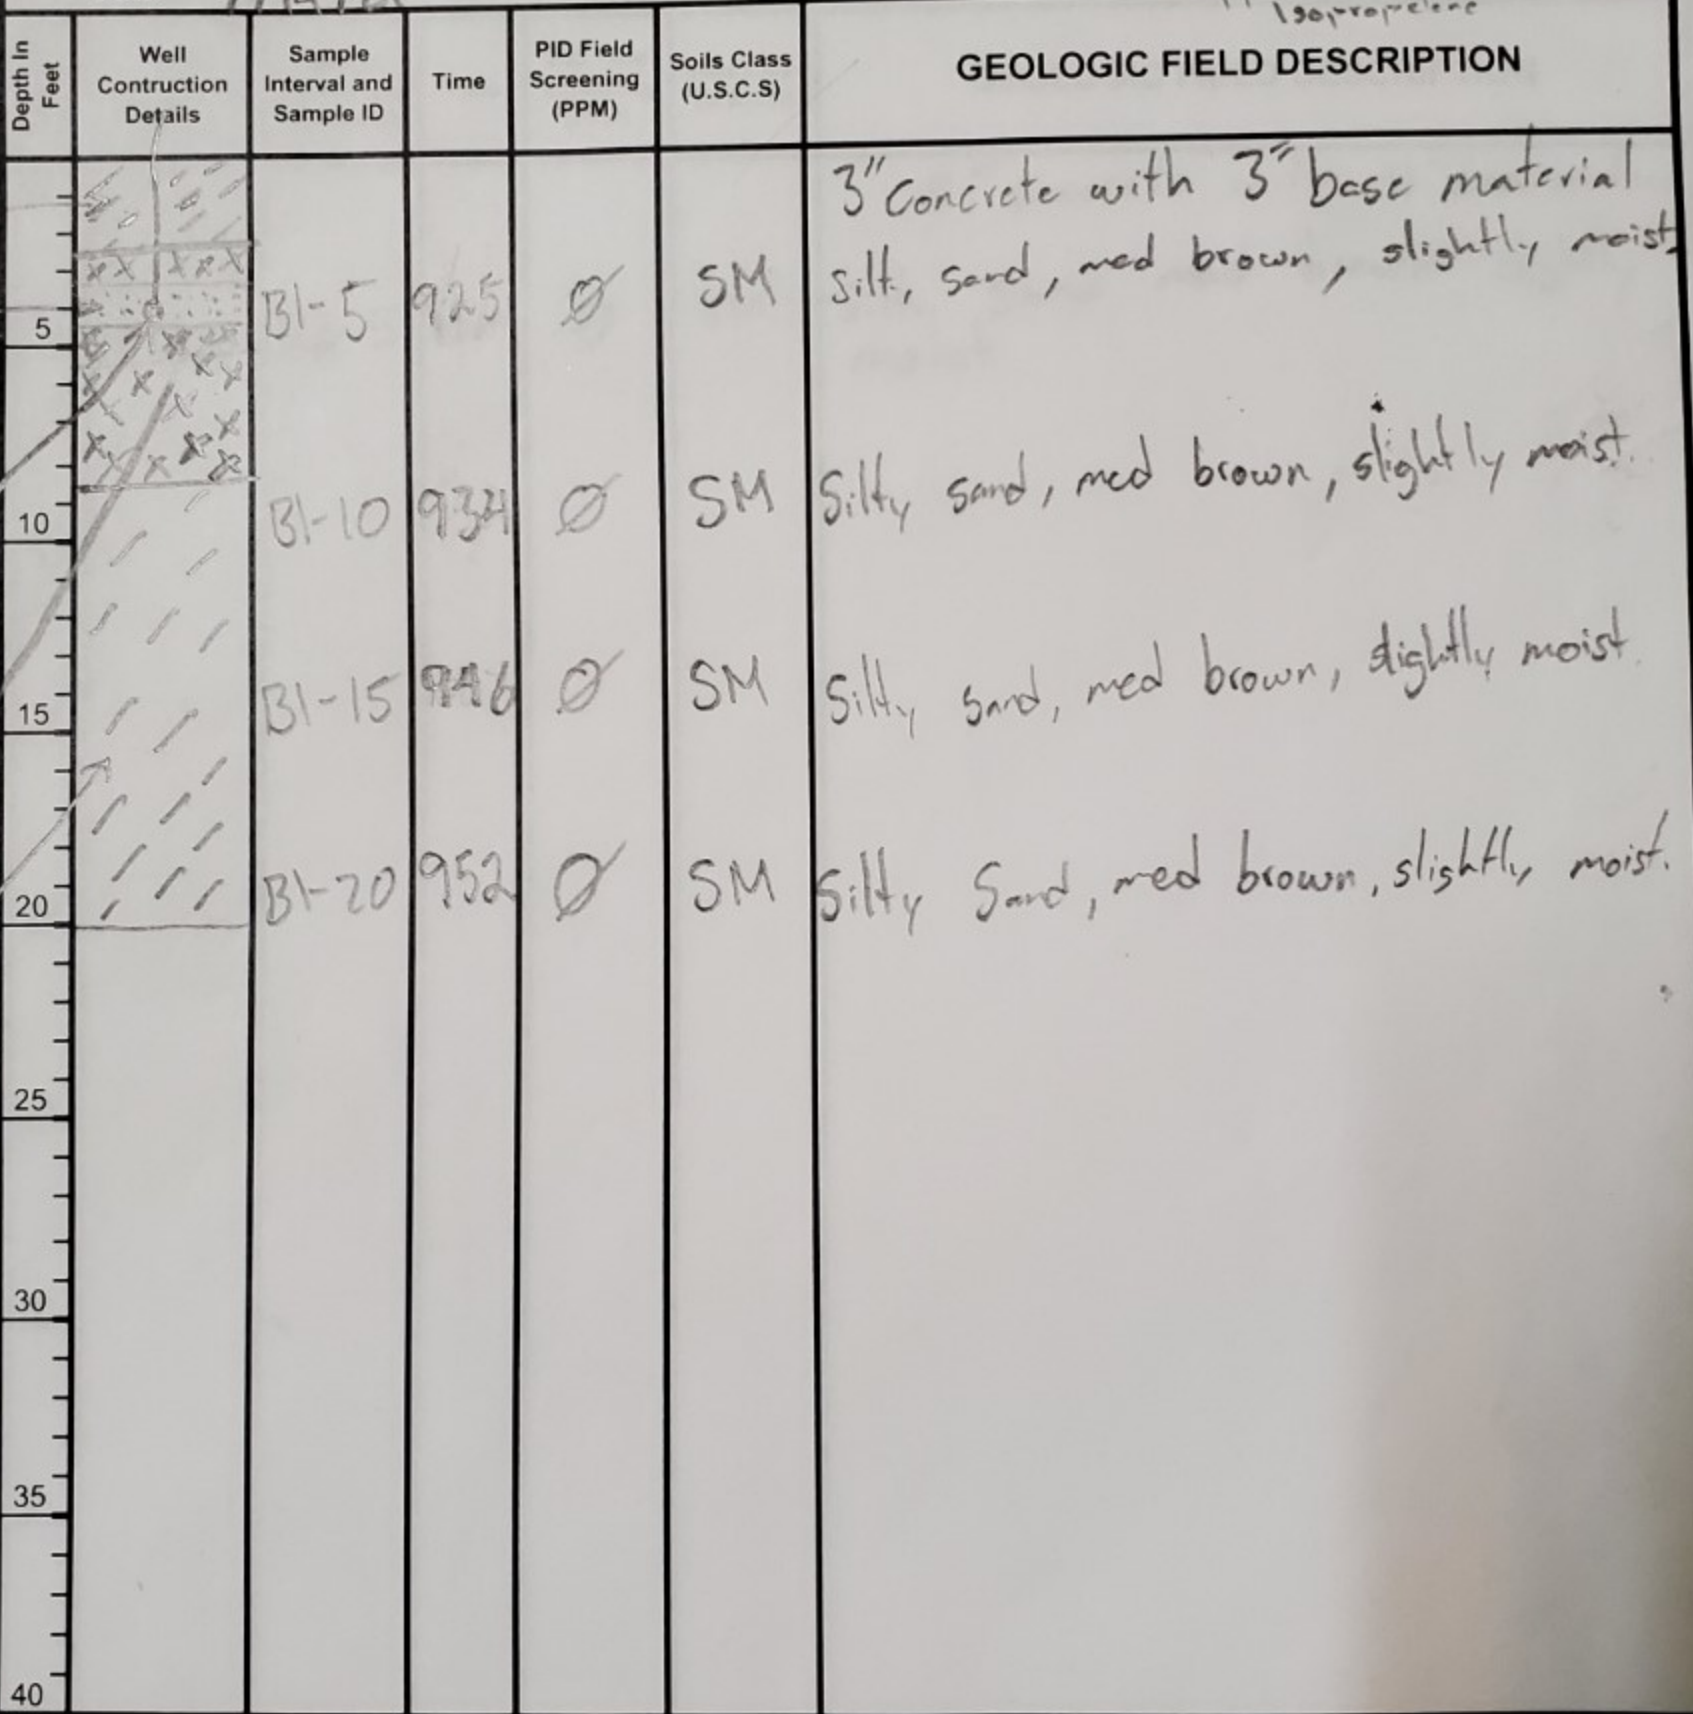 Isopropelene
Depth In Feet
Well Contruction Details
Sample Interval and Sample ID
Time
PID Field Screening (PPM)
Soils Class (U.S.C.S)
GEOLOGIC FIELD DESCRIPTION
3" Concrete with 3" base material
5 B1-5 925 Ø SM Silty sand, med brown, slightly moist.
10 B1-10 934 Ø SM Silty sand, med brown, slightly moist.
15 B1-15 946 Ø SM Silty sand, med brown, slightly moist.
20 B1-20 952 Ø SM Silty Sand, med brown, slightly moist.
25
30
35
40